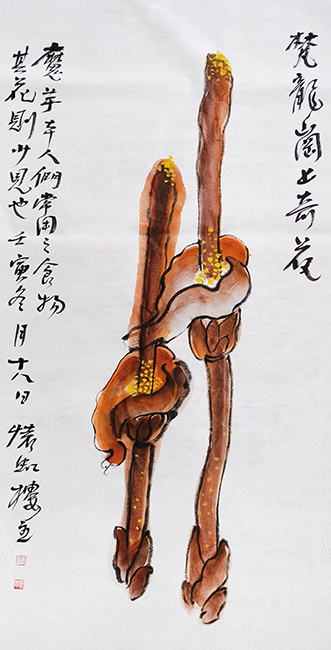 梵龍崗上奇花
魔芋本人們常用之食物
其花則少見也壬寅冬月十八日樓主